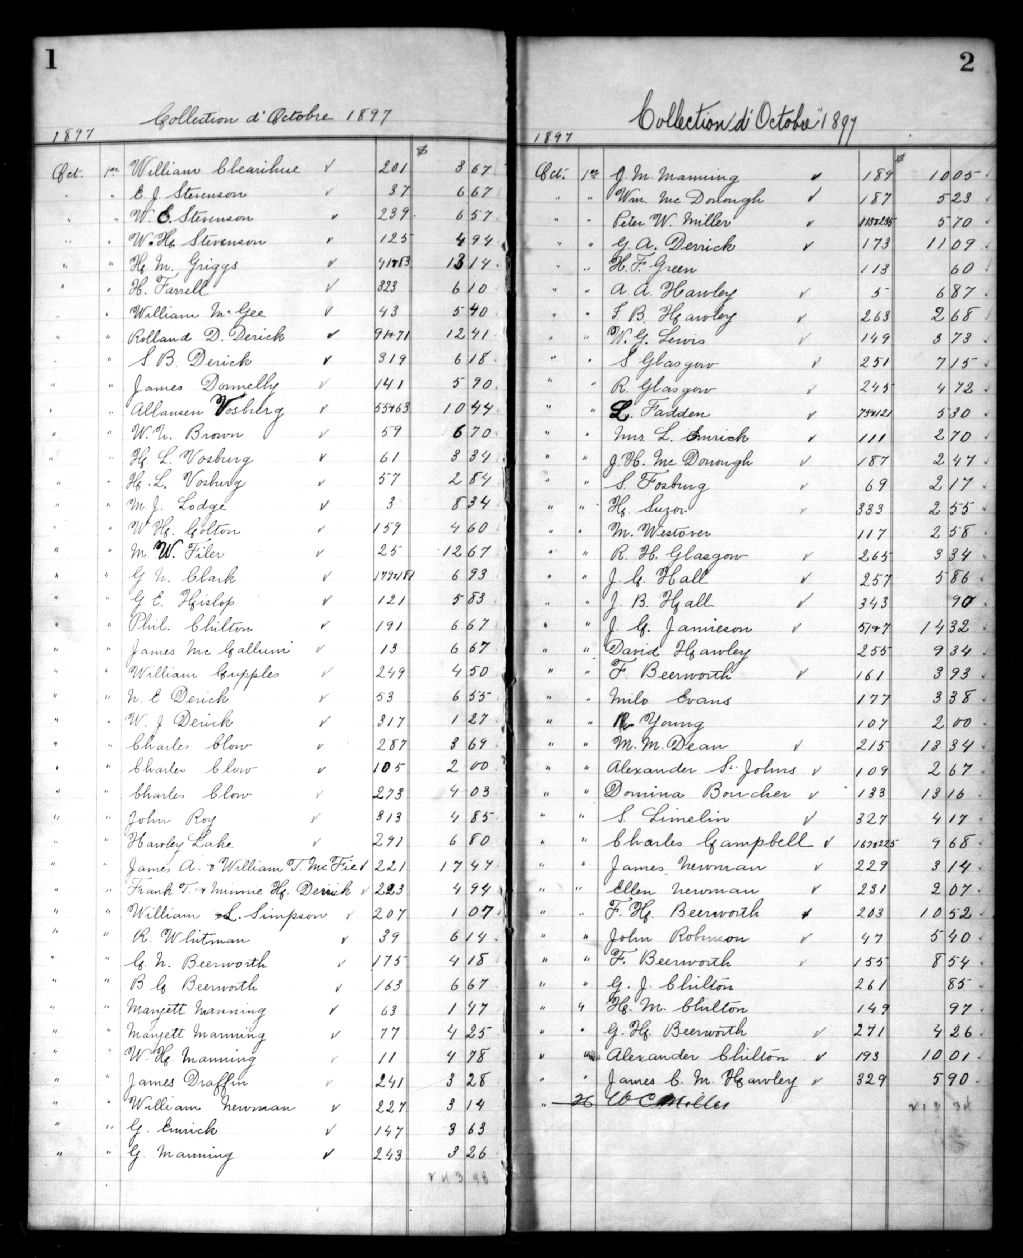 1
Collection d'Octobre 1897
1897
$
Oct. 1er William Clearihue ✓ 201 3 67
" " E. J. Stevenson ✓ 37 6 67
" " W. E. Stevenson ✓ 239 6 57
" " W. H. Stevenson ✓ 125 4 94
" " H. M. Griggs ✓ 41+83 13 14
" " H. Farrell ✓ 323 6 10
" " William McGee ✓ 43 5 40
" " Rolland D. Derick ✓ 91+71 12 41
" " S. B. Derick ✓ 319 6 18
" " James Donnelly ✓ 141 5 90
" " Allansen Vosburg ✓ 55+63 10 44
" " W. N. Brown ✓ 59 6 70
" " H. L. Vosburg ✓ 61 3 34
" " H. L. Vosburg ✓ 57 2 84
" " M. J. Lodge ✓ 3 8 34
" " W. H. Colton ✓ 159 4 60
" " M. W. Filer ✓ 25 12 67
" " G. N. Clark ✓ 179+181 6 93
" " G. E. Hislop ✓ 121 5 83
" " Phil. Chilton ✓ 191 6 67
" " James McCallum ✓ 13 6 67
" " William Cupples ✓ 249 4 50
" " N. E. Derick ✓ 53 6 55
" " W. J. Derick ✓ 317 1 27
" " Charles Clow ✓ 287 3 69
" " Charles Clow ✓ 105 2 00
" " Charles Clow ✓ 273 4 03
" " John Roy ✓ 313 4 85
" " Hawley Lake ✓ 291 6 80
" " James A. & William T. McFie ✓ 221 17 47
" " Frank T. & Minnie H. Derick ✓ 223 4 94
" " William L. Simpson ✓ 207 1 07
" " R. Whitman ✓ 39 6 14
" " C. N. Beerworth ✓ 175 4 18
" " B C Beerworth ✓ 163 6 67
" " Manning ✓ 63 1 47
" " Manning ✓ 77 4 25
" " W. H. Manning ✓ 11 4 78
" " James Draffin ✓ 241 3 28
" " William Newman ✓ 227 3 14
" " G. Emrick ✓ 147 3 63
" " G. Manning ✓ 243 3 26
2
Collection d'Octobre 1897
1897
$
Oct. 1er J. M. Manning ✓ 189 10 05
" " Wm. McDonough ✓ 187 5 23
" " Peter W. Miller ✓ 5 70
" " G. A. Derrick ✓ 173 11 09
" " H. F. Green 113 60
" " A. A. Hawley ✓ 5 6 87
" " F. B. Hawley ✓ 263 2 68
" " W. G. Lewis ✓ 149 3 73
" " S Glasgow ✓ 251 7 15
" " R. Glasgow ✓ 245 4 72
" " L. Fadden ✓ 75+121 5 30
" " Mrs L. Emrick ✓ 111 2 70
" " J. H. McDonough ✓ 187 2 47
" " S. Fosburg ✓ 69 2 17
" " H. Suzor ✓ 333 2 55
" " M. Westover 117 2 58
" " R. H. Glasgow ✓ 265 3 34
" " J. C. Hall ✓ 257 5 86
" " J. B. Hall ✓ 343 90
" " J. C. Jamieson ✓ 51+7 14 32
" " David Hawley 255 9 34
" " F. Beerworth ✓ 161 3 93
" " Milo Evans 177 3 38
" " R Young 107 2 00
" " M. M. Dean ✓ 215 13 34
" " Alexander St. Johns ✓ 109 2 67
" " Domina Boucher ✓ 133 13 16
" " S. Limelin ✓ 327 4 17
" " Charles Campbell ✓ 167+225 9 68
" " James Newman ✓ 229 3 14
" " Ellen Newman ✓ 231 2 07
" " F. H. Beerworth ✓ 203 10 52
" " John Robinson ✓ 47 5 40
" " F. Beerworth ✓ 155 8 54
" " G. J. Chilton 261 85
" " H. M. Chilton 149 97
" " G. H. Beerworth ✓ 271 4 26
" " Alexander Chilton ✓ 193 10 01
" " James C. M. Hawley ✓ 329 5 90
" W C Miller